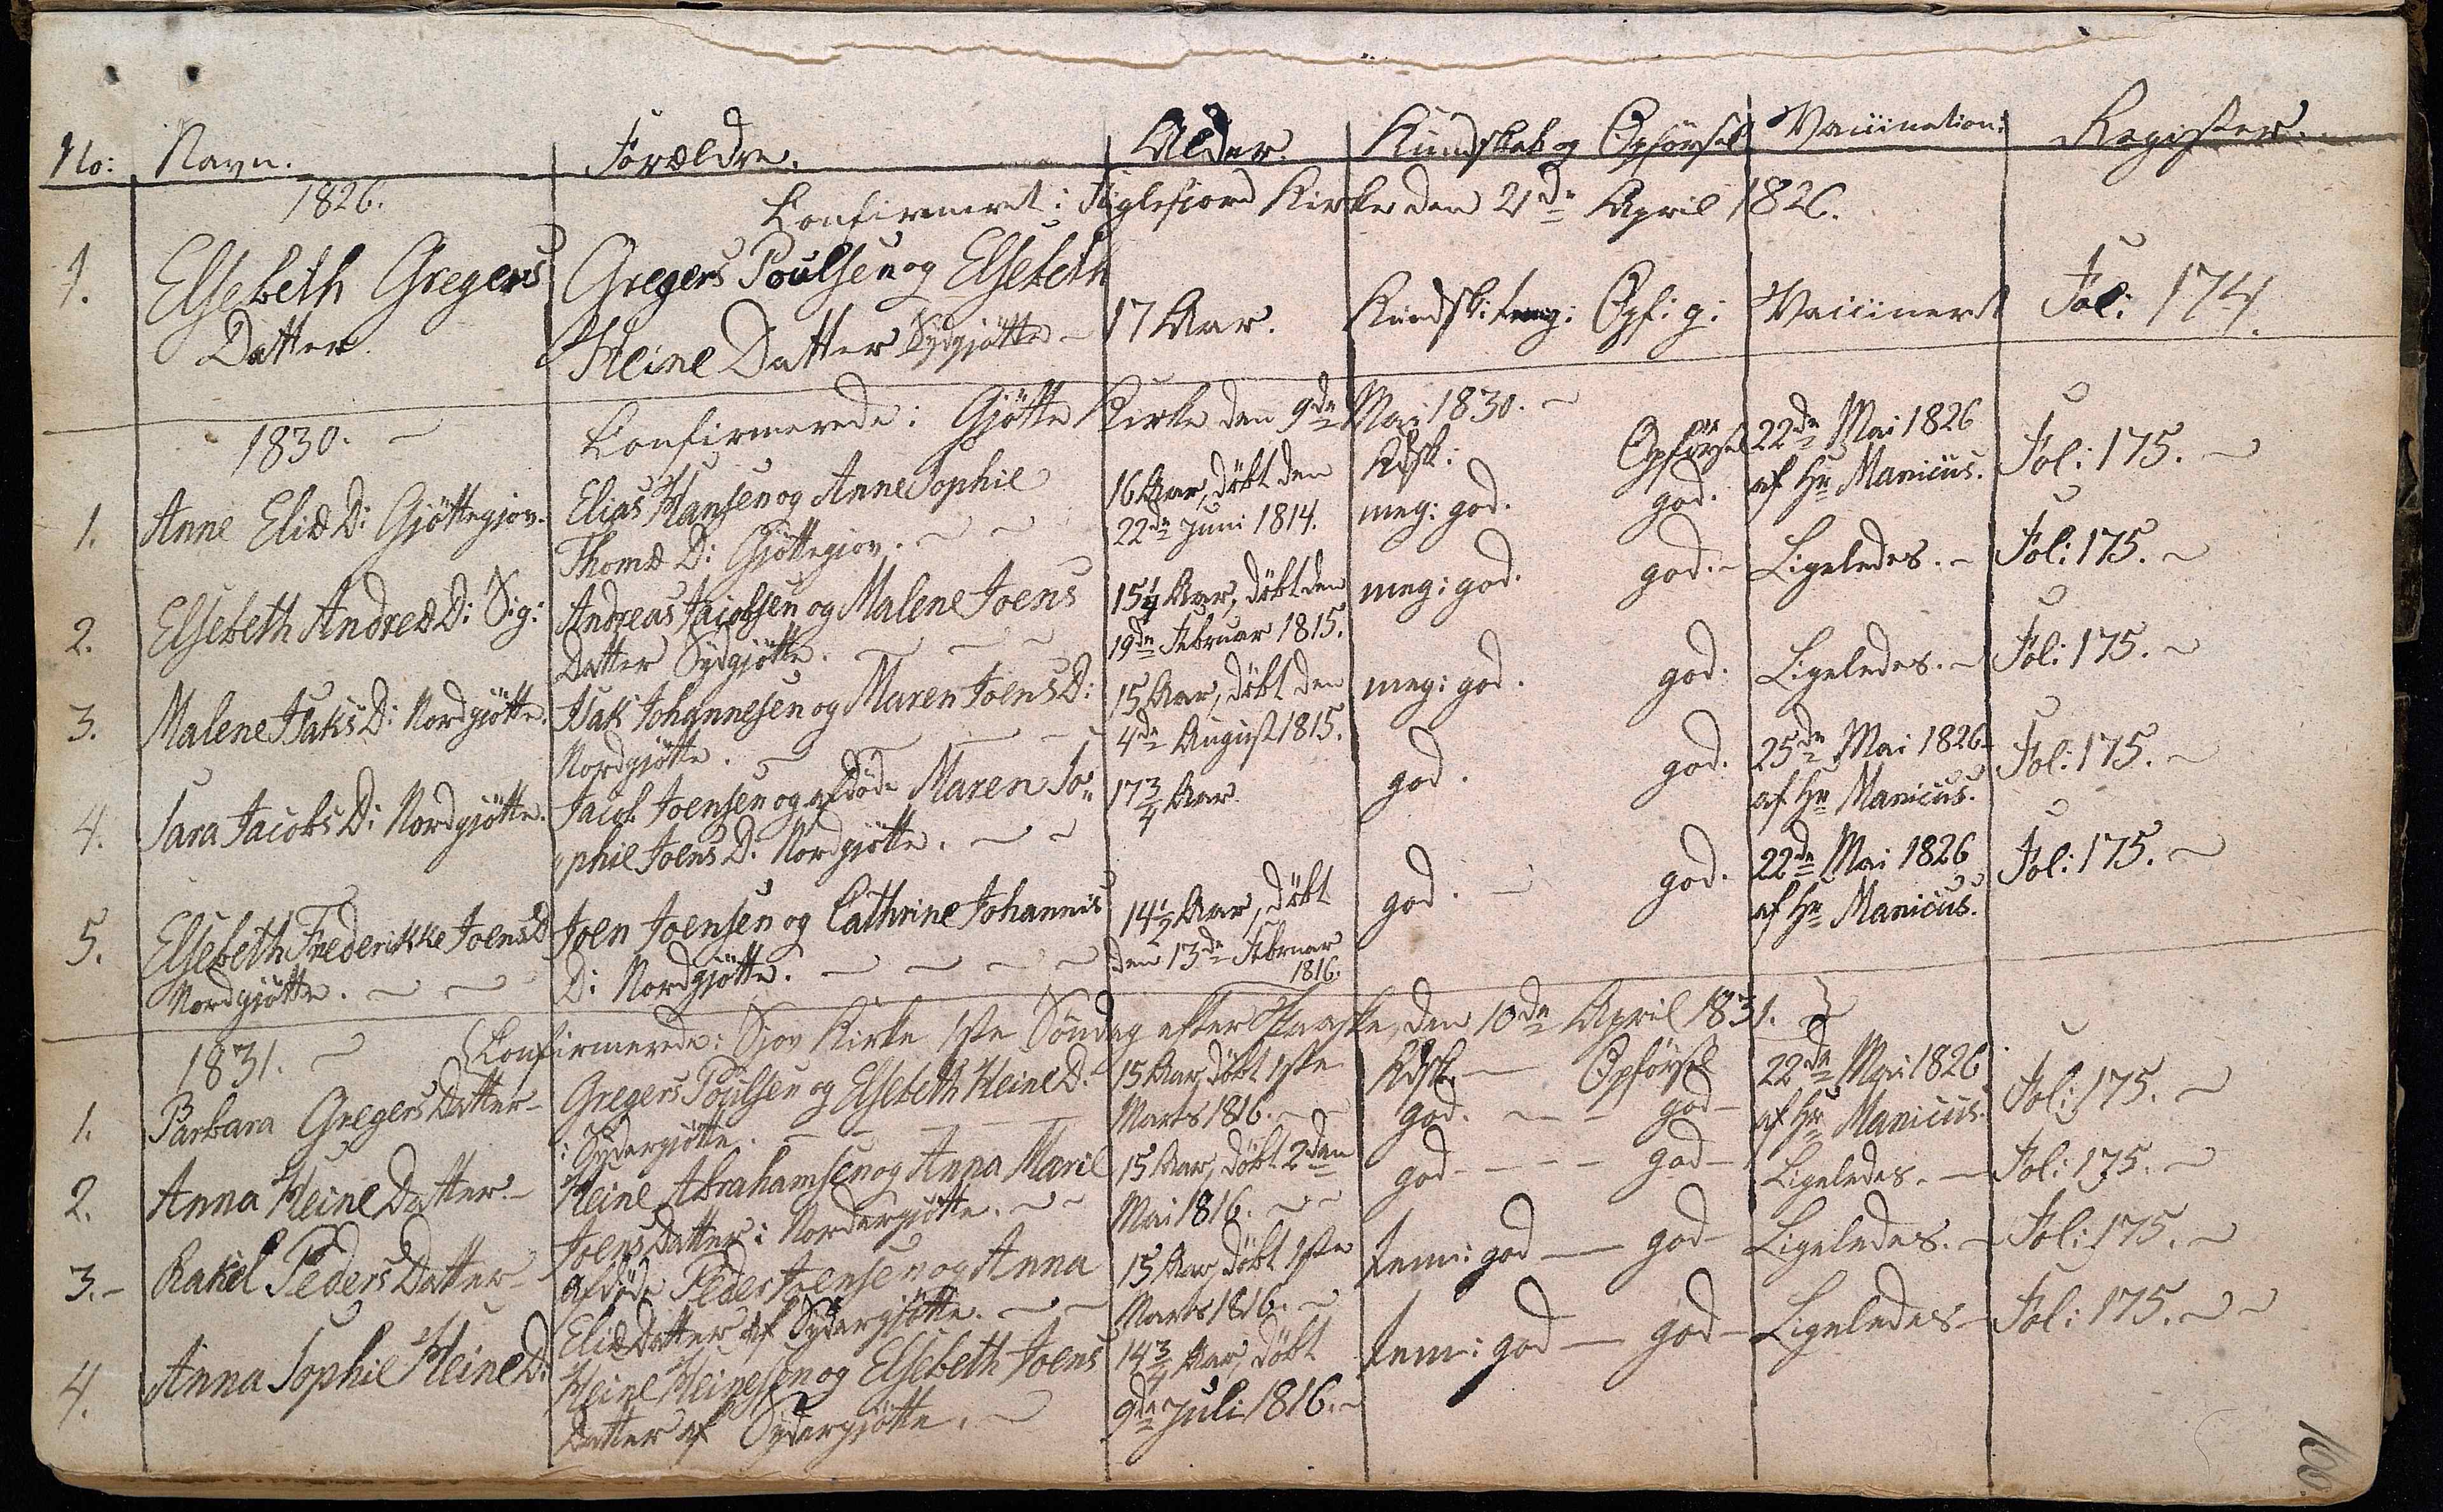 No: Navn. Forældre. Alder. Kundskab og Opførsel Vaccination: Register.
1826. Confirmeret i Fuglefjord Kirke den 2den April 1826.
1. Elsebeth Gregers Gregers Poulsen og Elsebeth
Datter Heine Datter Sydgjøtte – 17 Aar. Kundsk: temg: Opf: g: Vaccineret Fol: 174.
1830. – Confirmerede i Gjøtte Kirke den 9de Mai 1830. –
Kdsk: Opførsel
1. Anne Eliæ D: Gjøttegjov. Elias Hansen og Anne Sophie 16 Aar, døbt den meg: god. god. 22de Mai 1826 Fol: 175. –
Thomæ D: Gjøttegjov. – – 22de Juni 1814. af Hr Manicus.
2. Elsebeth Andreæ D: Sig: Andreas Jacobsen og Malene Joens 15 1/4 Aar, døbt den meg: god. god. – Ligeledes. – Fol: 175. –
Datter Sydgjøtte. – – – 19de Februar 1815.
3. Malene Isaks D: Nordgjøtte. Isak Johannesen og Maren Joens D: 15 Aar, døbt den meg: god. god. Ligeledes. – Fol: 175. –
Nordgjøtte. – – – – 4de August 1815.
4. Sara Jacobs D: Nordgjøtte. Jacob Joensen og afdøde Maren So= 17 3/4 Aar god. god. 25de Mai 1826 Fol: 175. –
phie Joens D: Nordgjøtte. – – af Hr Manicus.
5. Elsebeth Frederikke Joens D Joen Joensen og Cathrine Johannis 14 1/2 Aar, døbt god. – god. 22de Mai 1826 Fol: 175. –
Nordgjøtte. – – D: Nordgjøtte. – – – – den 13de Februar af Hr Manicus.
1816.
1831. – (Confirmerede i Sjov Kirke 1ste Søndag efter Paaske, den 10de April 1831. }
Kdsk. – Opførsel
1. Barbara Gregers Datter – Gregers Poulsen og Elsebeth Heine D. 15 Aar, døbt 1ste god. – – god – 22de Mai 1826 Fol: 175. –
i Sydergjøtte. – – – – Marts 1816. – – af Hr Manicus.
2. Anna Heine Datter – Heine Abrahamsen og Anna Marie 15 Aar, døbt 2den god – – – god – Ligeledes. – Fol: 175. –
Joens Datter i Nordergjøtte. – – Mai 1816. – –
3. – Rakel Peders Datter – afdøde Peder Joensen og Anna 15 Aar, døbt 1ste tem: god – god – Ligeledes. – Fol: 175. –
Eliæ Datter af Sydergjøtte. – – Marts 1816. –
4. Anna Sophie Heine D: Heine Heinesen og Elsebeth Joens 14 3/4 Aar, døbt tem: god – god – Ligeledes – Fol: 175. – –
Datter af Sydergjøtte. – 9de Juli 1816. –